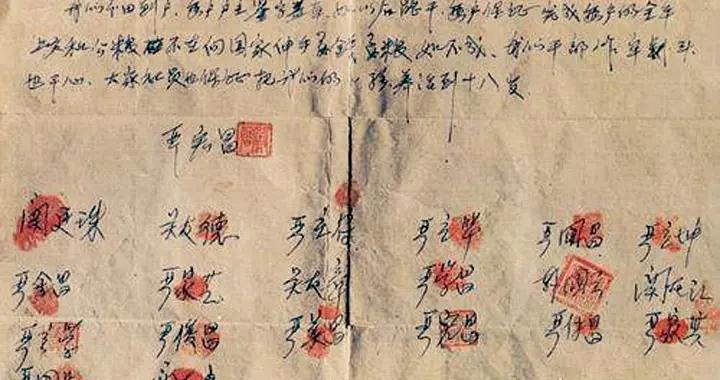 我们分田到户,每户户主签字盖章,如以后能干,每户保证完成每户的全年
上交和公粮 不在向国家伸手要钱要粮 如不成,我们干部作牢刹头
也干心,大家社员也保证把我们的小孩养活到十八岁
严宏昌
关廷珠 关友德 严立符 严立华 严国昌 严立坤
严金昌 严家芝 关友章 严学昌 韩国云 关友江
严立学 严俊昌 严美昌 严宏昌 严付昌 严家其